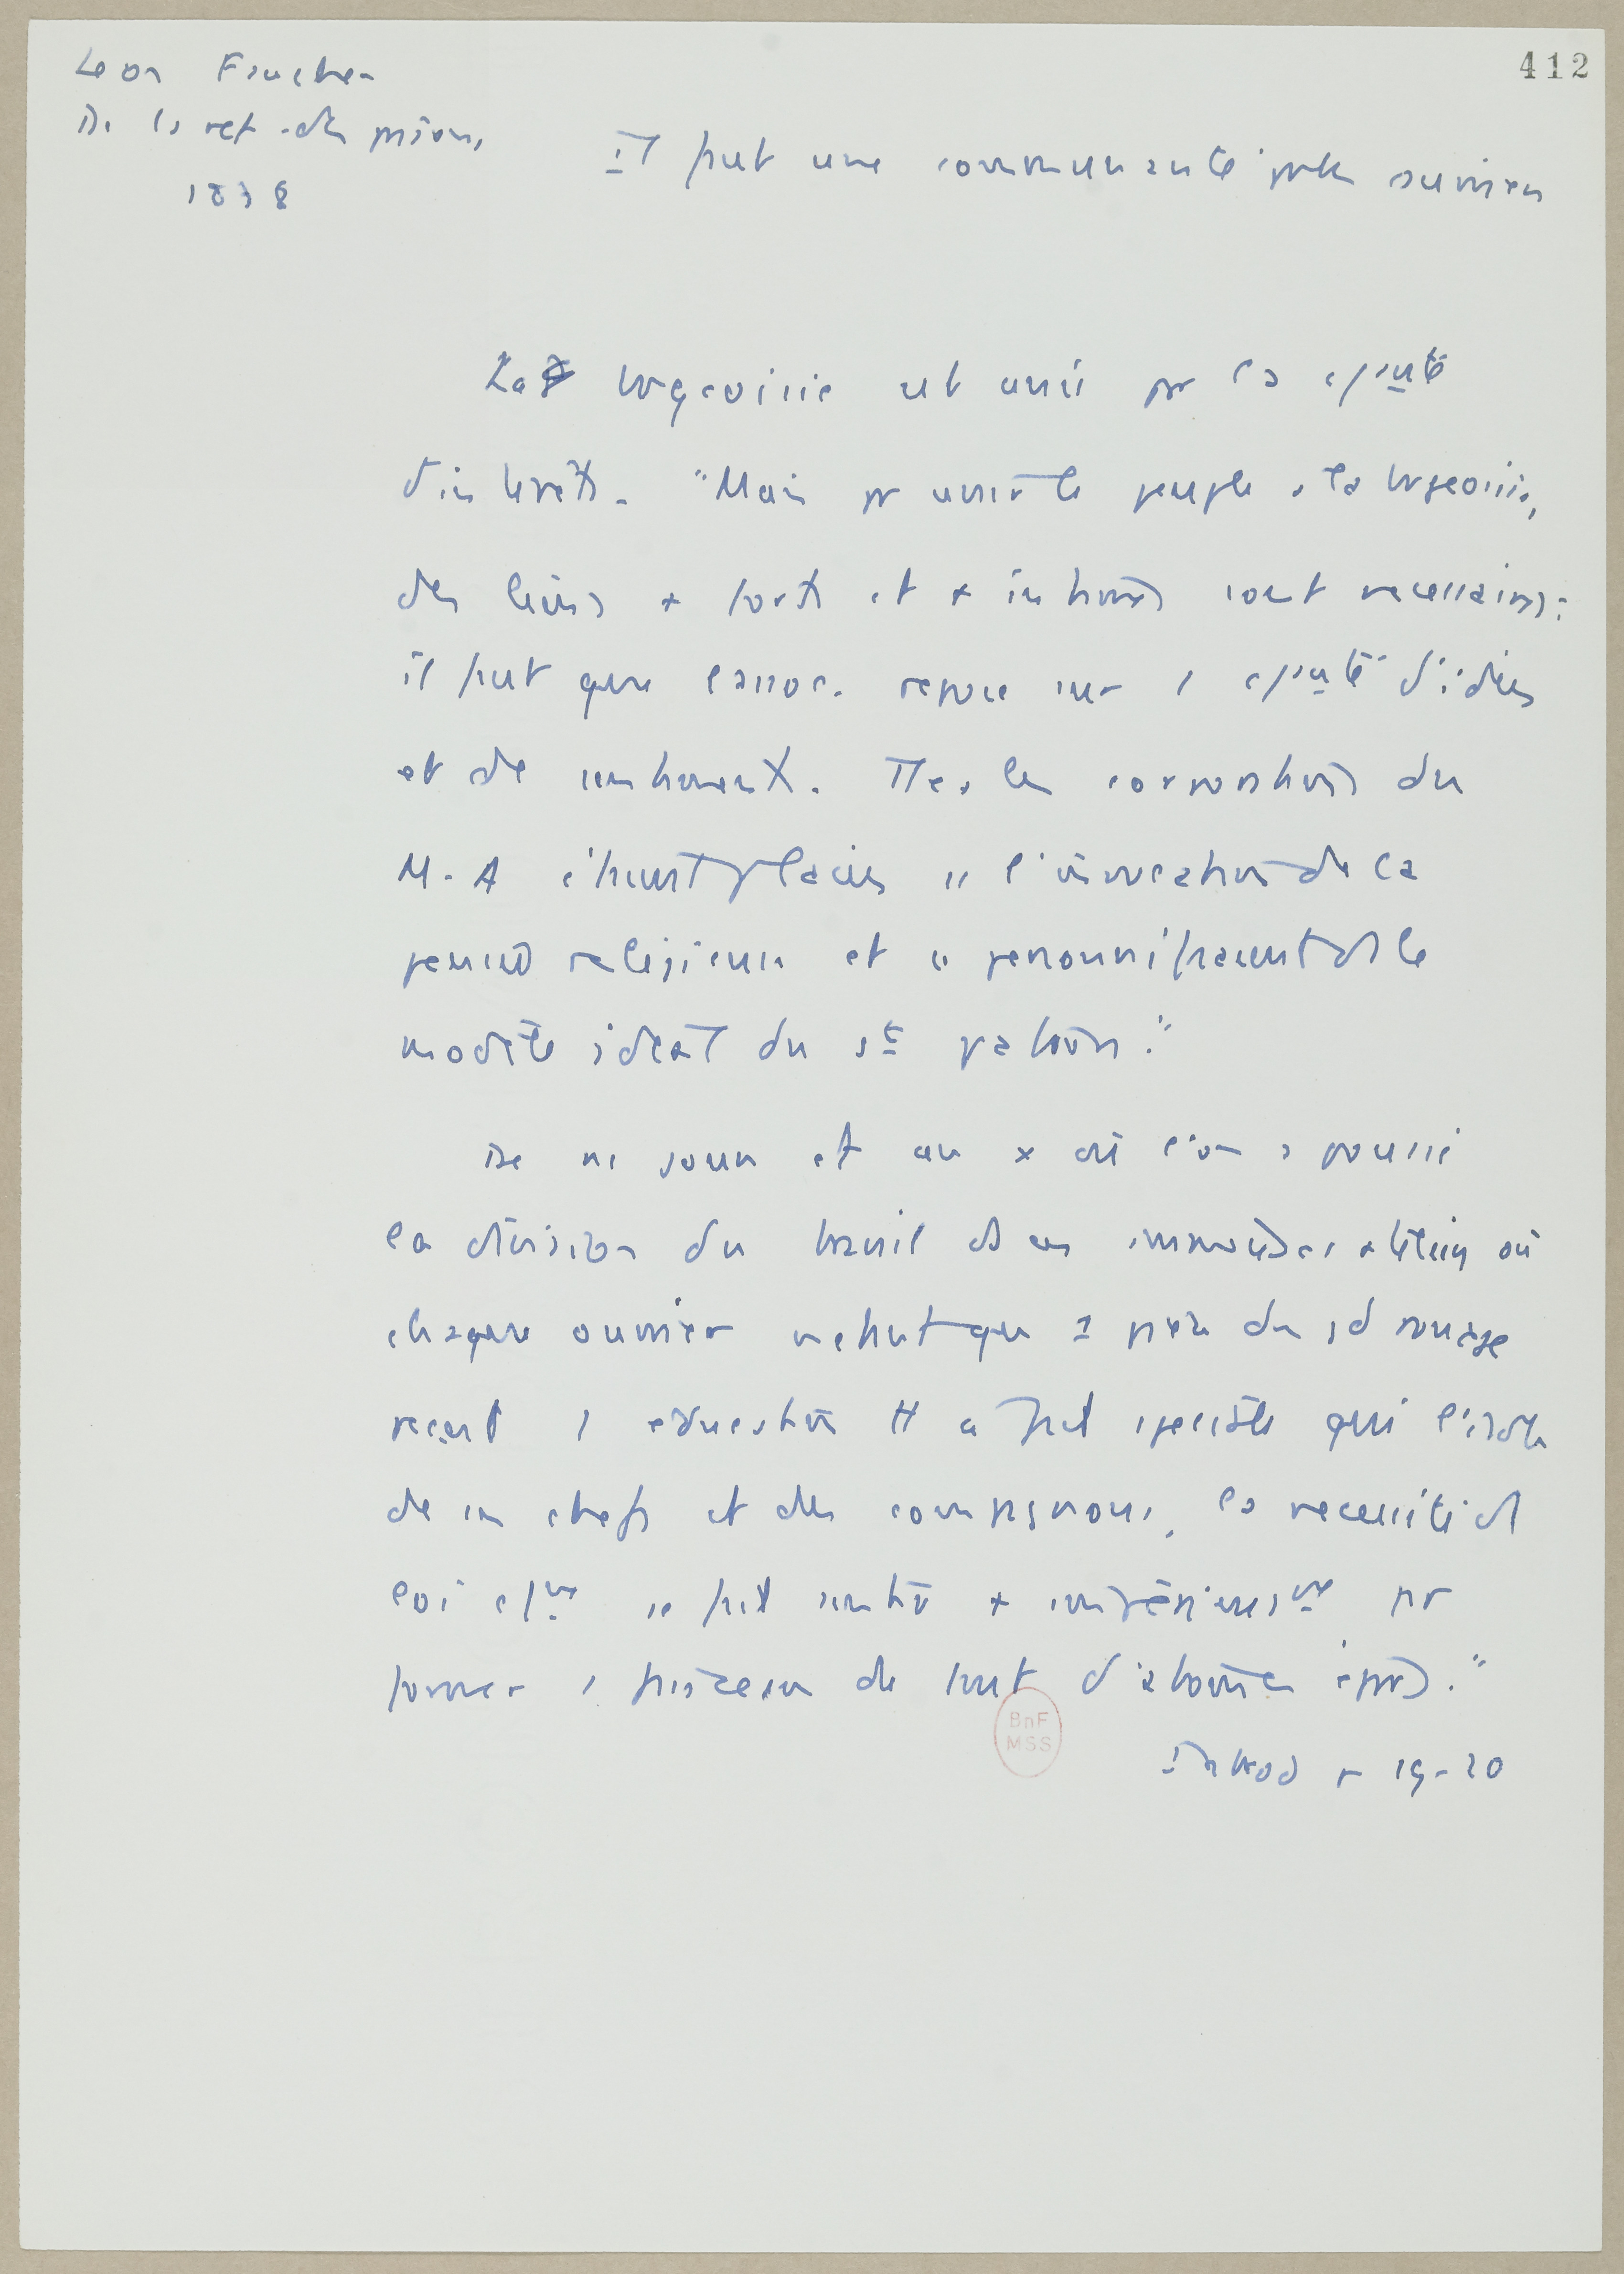 412
Leon Faucher
De la ref. des prisons
1838
Il faut une communauté entre ouvriers
La bourgeoisie est unie par la c/auté
d'intérêts. "Mais pr unir le peuple à la bourgeoisie,
des liens + forts et + intimes sont necessaires :
il faut que l'assoc. repose sur 1 c/auté d'idées
et de sentiments. Ttes les corporations du
M. A s'étaient placées ss l'invocation de la
pensée religieuse et se personnifiaient ds le
modèle idéal du st patron."
De nos jours et au x où l'on a poussé
la division du travail ds ces immenses ateliers où
chaque ouvrier ne fait que 1 pièce du gd rouage
reçoit 1 education tt à fait speciale qui l'isole
de ses chefs et des compagnons, la necessité d
loi c/ne se fait sentir + impérieust pr
former 1 faisceau de tout d'atomes épars."
Introd p 19-20
BnF
MSS